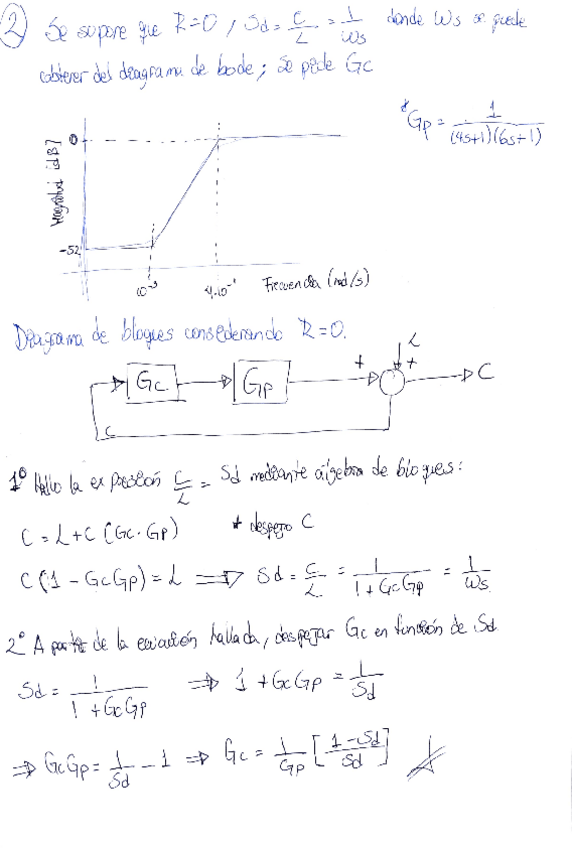 2 Se supone que R=0 / Sd = C/L = 1/Ws donde Ws se puede
obtener del diagrama de bode; se pide Gc
* Gp = 1/((4s+1)(6s+1))
Magnitud [dB]
0
-52
10⁻³ 4·10⁻¹ Frecuencia (rad/s)
Diagrama de bloques considerando R=0.
L
+ +
Gc Gp C
C
1º Hallo la expresión C/L = Sd mediante álgebra de bloques:
C = L + C (Gc·Gp) * despejo C
C (1 - GcGp) = L ⟹ Sd = C/L = 1/(1+GcGp) = 1/Ws
2º A partir de la ecuación hallada, despejar Gc en función de Sd
Sd = 1/(1+GcGp) ⟹ 1 + GcGp = 1/Sd
⟹ GcGp = 1/Sd - 1 ⟹ Gc = 1/Gp [(1-Sd)/Sd]